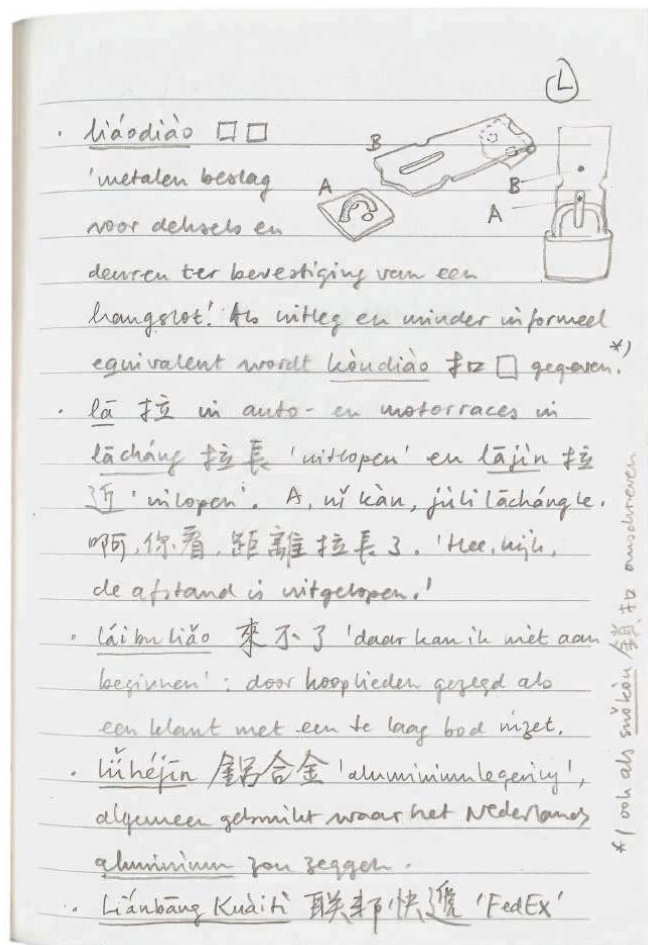 L
· liáodiào □□
'metalen beslag
voor deksels en
deuren ter bevestiging van een
hangslot'. Als uitleg en minder informeel
equivalent wordt kòudiào 扣□ gegeven.*)
· lā 拉 in auto- en motorraces in
lācháng 拉長 'uitlopen' en lājìn 拉
近 'inlopen'. A, nǐ kàn, jùlí lāchángle.
啊,你看,距離拉長了. 'Hee, kijk,
de afstand is uitgelopen.'
· láibuliǎo 來不了 'daar kan ik niet aan
beginnen': door kooplieden gezegd als
een klant met een te laag bod inzet.
· lǚhéjīn 鋁合金 'aluminiumlegering',
algemeen gebruikt waar het Nederlands
aluminium zou zeggen.
· Liánbāng Kuàidì 联邦快遞 'FedEx'
A
B
B
A
*) ook als suǒkòu 鎖扣 omschreven